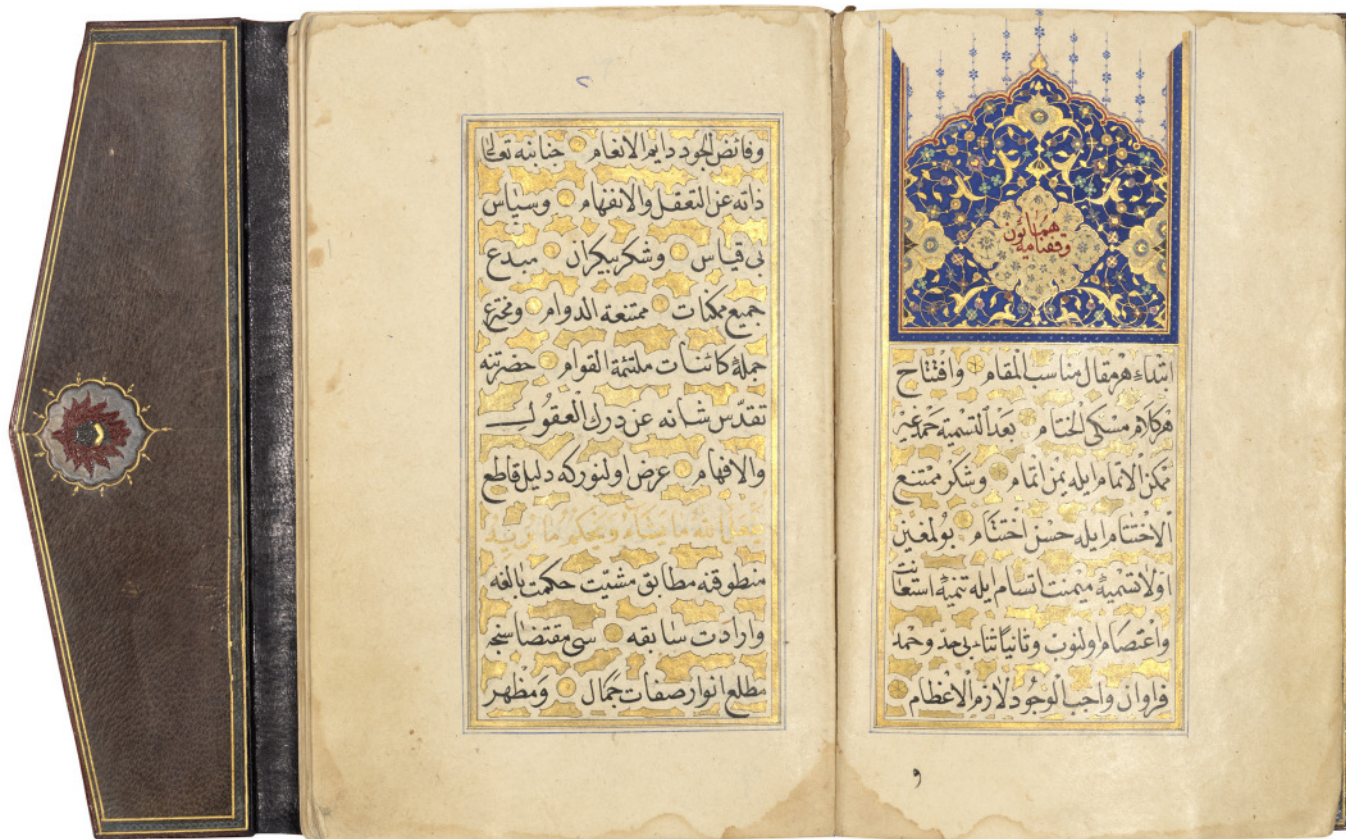 وقفنامه
همايون
ابتداء هر مقال مناسب المقام وافتتاح
هر كلام مسكى الختام بعد التسمية حمد غير
ممكن الاتمام ايله يمن اتمام وشكر ممتنع
الاختتام ايله حسن اختتام بولمغين
اولا تسمية ميمنت اتسام ايله تنمية استعانت
واعتصام اولنوب وثانيا ثناء بى حد وحمد
فراوان واجب الوجود لازم الاعظام
و
٧
وفائض الجود دايم الانعام جنابنه تعالى
ذاته عن التعقل والانفهام وسپاس
بى قياس وشكر بيكران مبدع
جميع ممكنات ممتنعة الدوام ومخترع
جملۀ كائنات ملتئمة القوام حضرتنه
تقدّس شانه عن درك العقول
والافهام عرض اولنور كه دليل قاطع
يفعل الله ما يشاء ويحكم ما يريد
منطوقنه مطابق مشيّت حكمت بالغه
وارادت سابقه سى مقتضاسنجه
مطلع انوار صفات جمال ومظهر